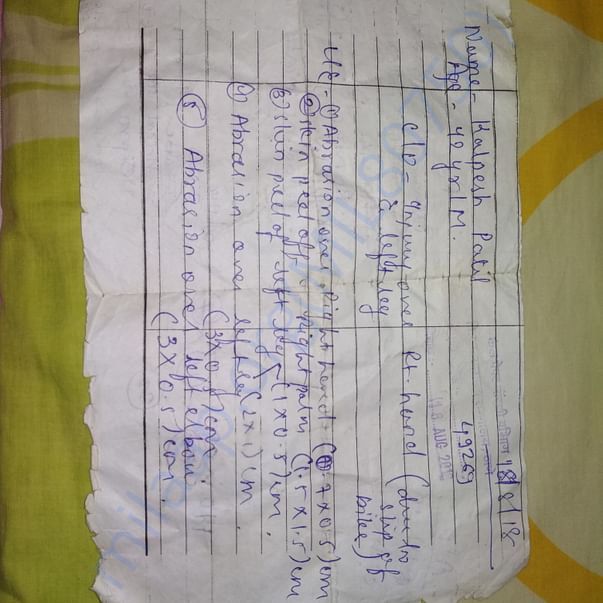 18/8/18
Name - Kalpesh Patil
49269
Age - 40 yr/M.
18 AUG
C/O - Injury over Rt. hand (due to slip of bike)
& left leg
(1) Abrasion over Right hand (0.7x0.5)cm
(2) Skin peel off right palm (1.5x1.5)cm
(3) Skin peel of left leg (1x0.5)cm.
(4) Abrasion over left leg (2x1)cm.
(3x0.5)cm.
(5) Abrasion over left elbow
(3x0.5)cm.